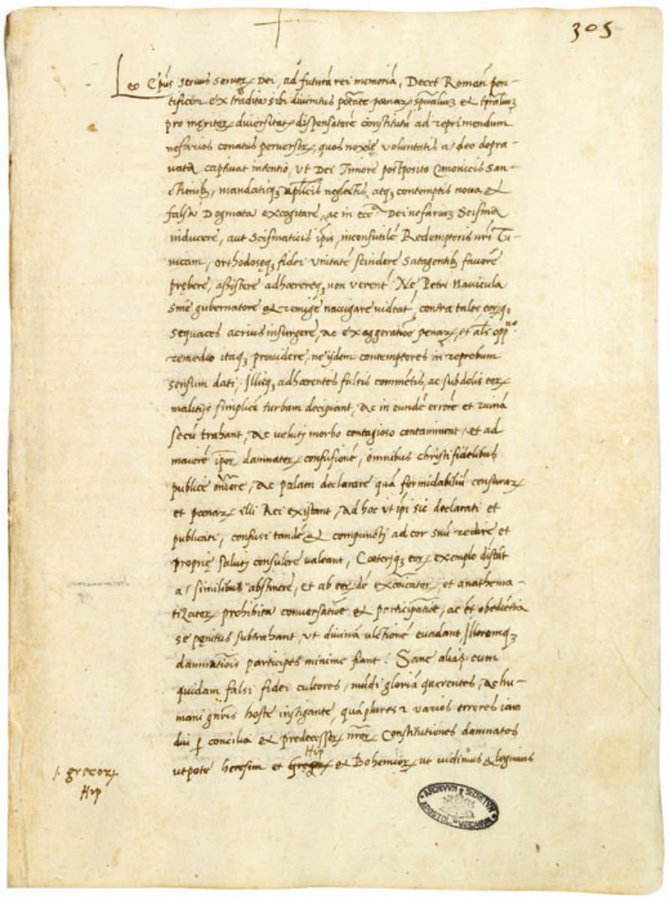 305
Leo Ep̄us servus servoꝝ Dei, ad futurā rei memoriā, Decet Romanū pon-
tificem ex tradita sibi divinitus potāte pœnaꝝ sp̄ualiuꝫ et tp̄raliuꝫ
pro meritoꝝ diversitate dispensatorē constitutū ad reprimendum
nefarios conatus perversoꝝ, quos noxię voluntatis a deo depra-
vata captivat intentio, ut Dei Timore postposito Canonicis san-
ctionibꝫ, mandatisqꝫ ap̄licis neglectis, atqꝫ contemptis nova et
falsa Dogmata excogitare, ac in eccā Dei nefarium Scisma
inducere, aut Scismaticis ip̄is, inconsutilē Redemptoris nr̄i Tu-
nicam, orthodoxęqꝫ fidei unitatē scindere satagentibꝫ favorē
prebere, assistere adhærereqꝫ non verent̄. Ne Petri Navicula
sine gubernatore et remige navigare videat̄, contra tales eoꝝqꝫ
sequaces acrius insurgere, ac exaggeratione penaꝝ, et alio oppno
remedio itaqꝫ providere, ne ijdem contemptores in reprobum
sensum dati, Illisqꝫ adhærentes falsis commentis, ac subdolis eoꝝ
malitijs simplicē turbam decipiant, ac in eundē errorē et ruinā
secū trahant, ac veluti morbo contagioso contaminent, et ad
maiorē ip̄oꝝ damnatoꝝ confusionē, omnibus christi fidelibus
publice ac palam declarare quā formidabiliū censuraꝝ
et pœnaꝝ illi Rei existant, ad hoc ut ip̄i sic declarati et
publicati, confusi tandē et compuncti ad cor suū redire et
proprię saluti consulere valeant, Cæteriqꝫ eoꝝ exemplo
a similibus abstinere, et ab et anathema-
tizatoꝝ prohibita conversatiōe et participatiōe, ac et obedientia
se penitus subtrahant, ut divinā ultionē evadant, Illorumqꝫ
damnatiōis participes minime fiant: Sane alias cum
quidam falsi fidei cultores, mūdi gloriā querentes, ac hu-
mani gn̄ris hoste instigante, quā plures et varios errores iam
diu ꝑ concilia et predecessoꝝ nr̄oꝝ Constitutiones damnatos
Hꝝp
utpote heresim et grecoꝝ et Bohemoꝝ, ut vidimus et legimus
/. grecoꝝ
Hꝝp
ARCHIVUM SECRETUM APOSTOL. VATICANUM